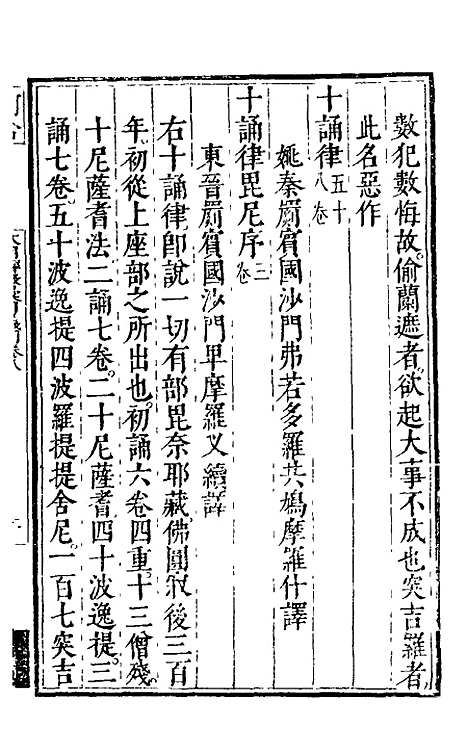 數犯數悔故。偷蘭遮者。欲起大事不成也突吉羅者
此名惡作
十誦律五十八卷
姚秦罽賓國沙門弗若多羅共鳩摩羅什譯
十誦律毘尼序三卷
東晉罽賓國沙門卑摩羅叉續譯
右十誦律卽說一切有部毘奈耶藏。佛圓寂後三百
年。初從上座部之所出也。初誦六卷四重。十三僧殘。
十尼薩耆法二誦七卷。二十尼薩耆四十波逸提。三
誦七卷。五十波逸提四波羅提提舍尼。一百七突吉